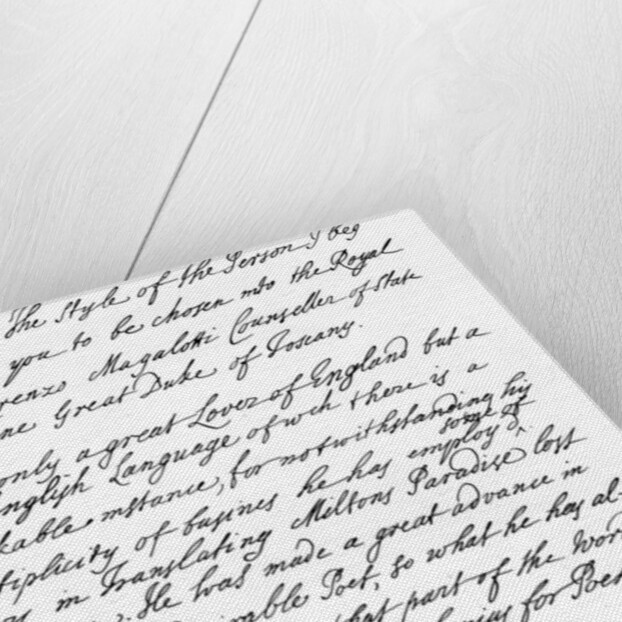 The Style of the Person y beg
you to be chosen into the Royal
renzo Magalotti Counseller of State
ne Great Duke of Toscany.
only a great Lover of England but a
nglish Language of wch there is a
kable instance, for notwithstanding his
tiplicity of busines he has employ'd some of
in Translating Miltons Paradise lost
He was made a great advance in
rable Poet, so what he has al-
hat part of the Wor
nius for Poe